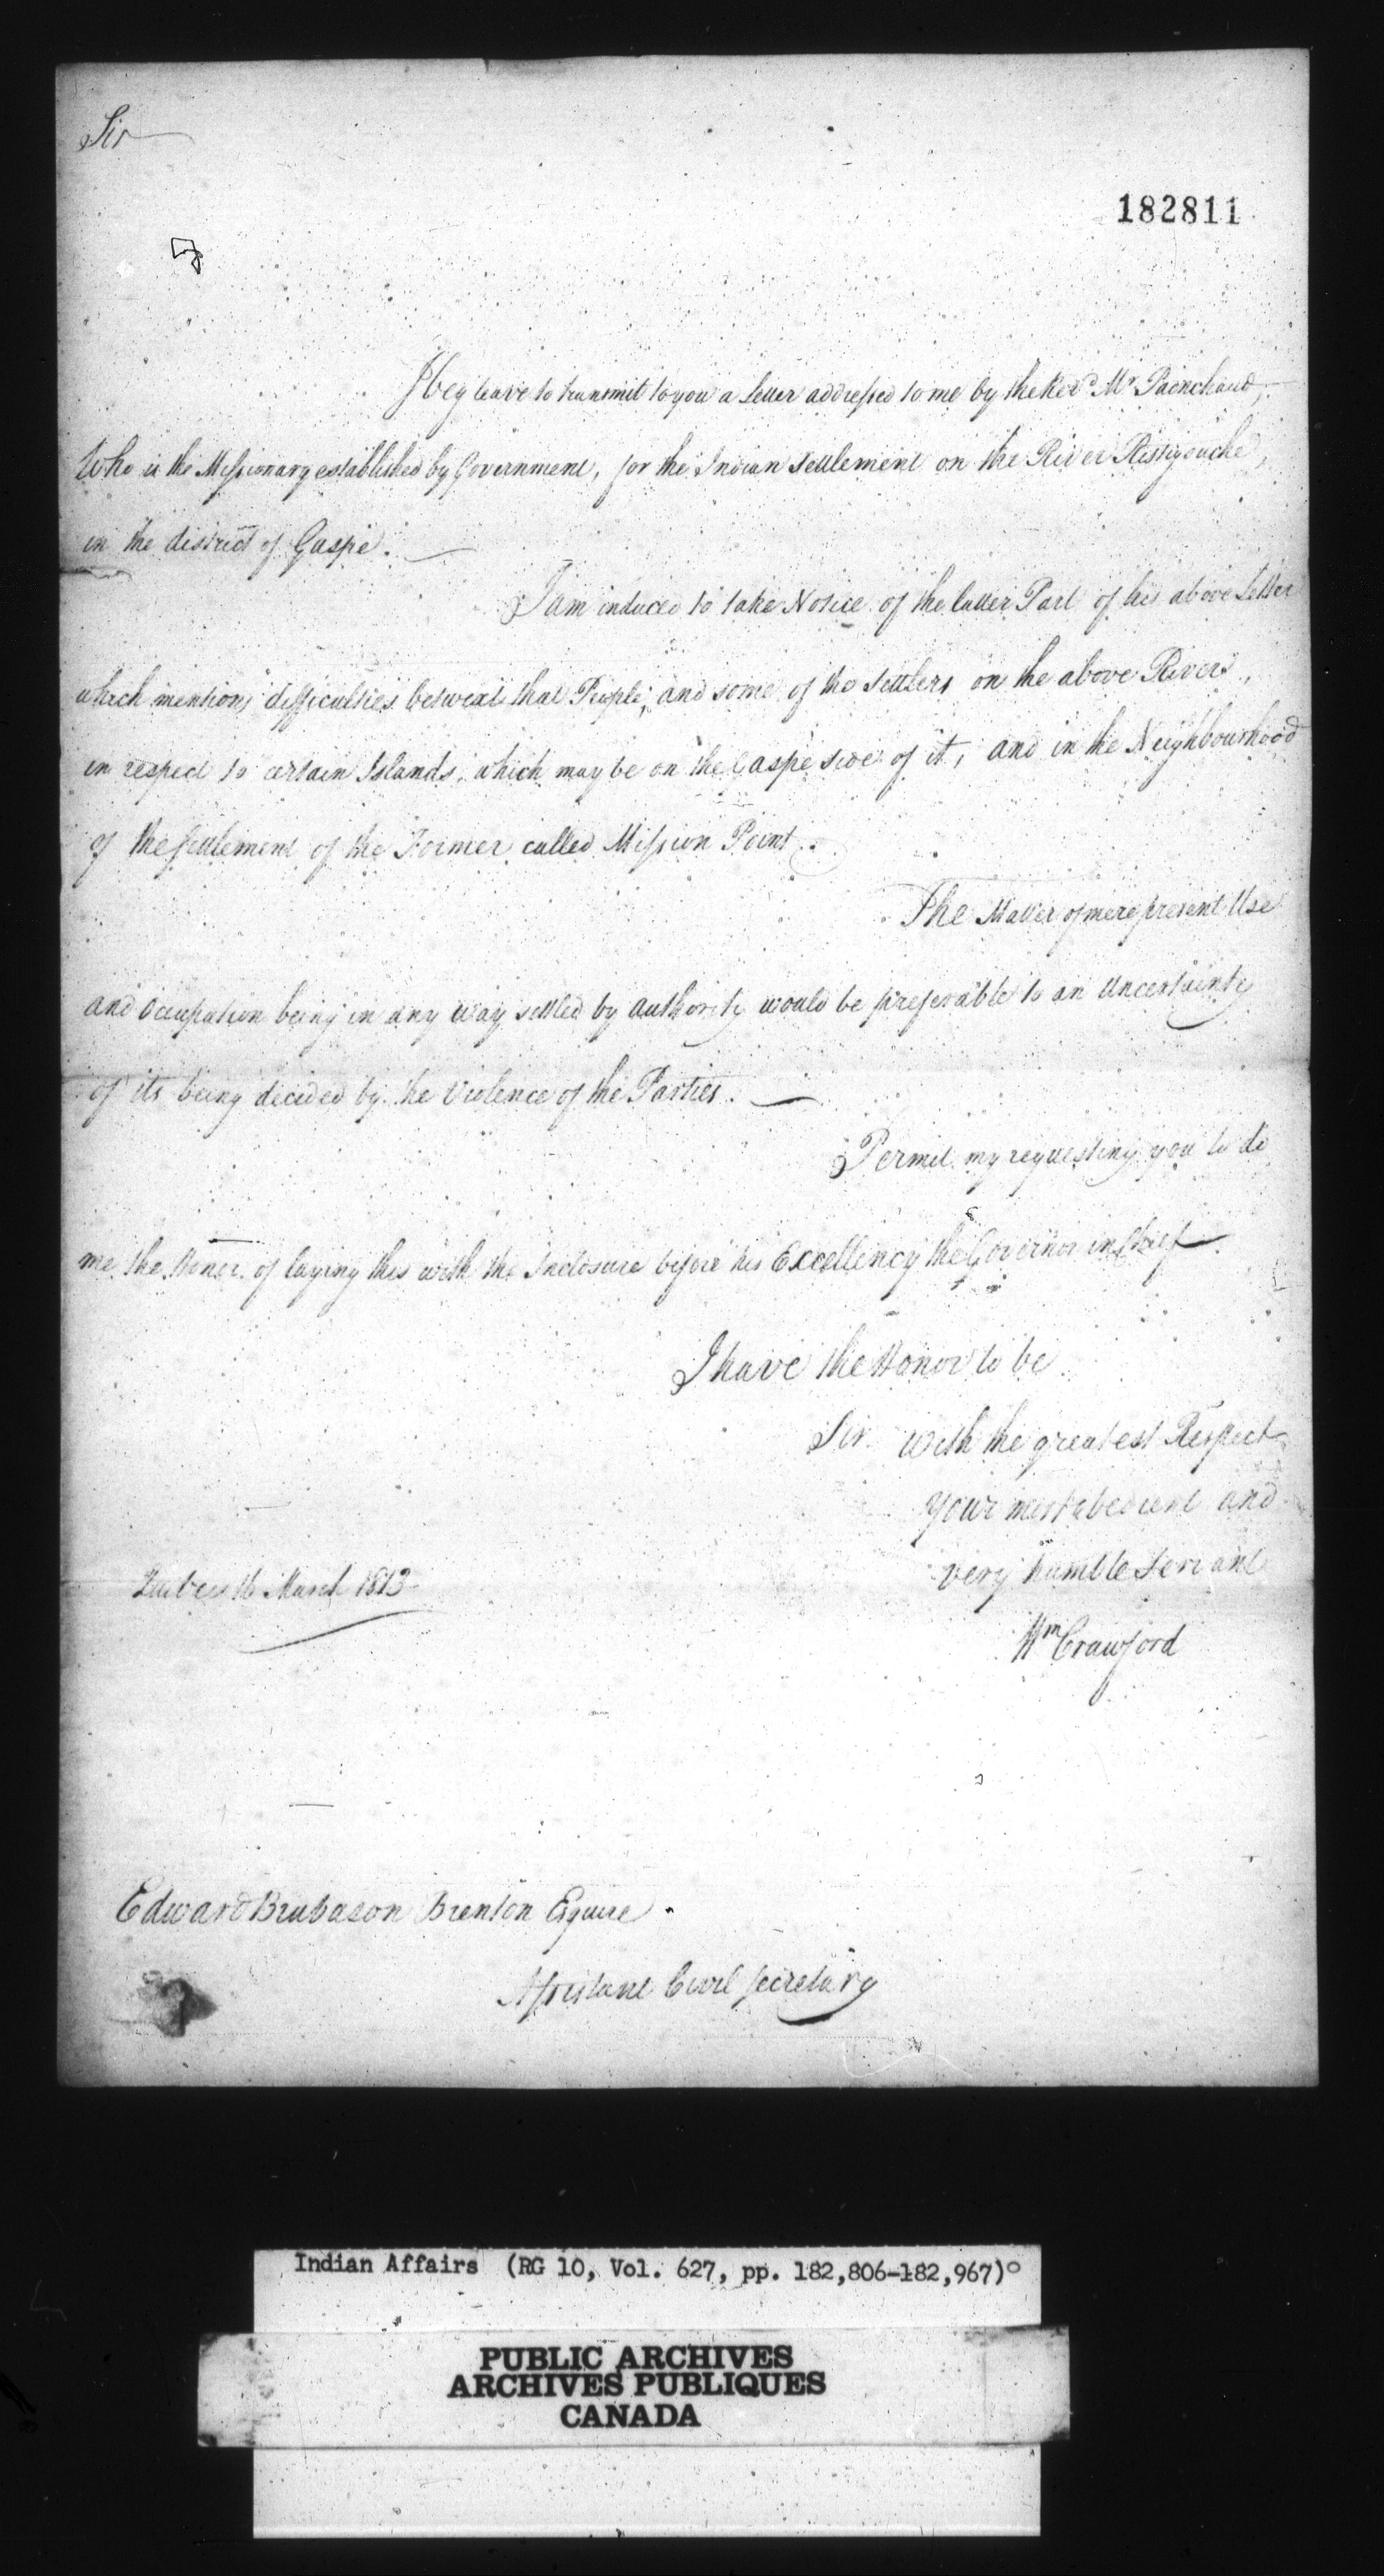 Sir
182811
I beg leave to transmit to you a Letter addressed to me by the Revd. Mr. Painchaud,
Who is the Missionary established by Government, for the Indian Settlement on the River Ristigouche,
in the district of Gaspé.
I am induced to take Notice of the latter Part of his above Letter
which mentions difficulties betwixt that People, and some of the Settlers on the above River,
in respect to certain Islands, which may be on the Gaspé side of it, and in the Neighbourhood
of the Settlement of the Former called Mission Point.
The Matter of mere present Use
and Occupation being in any way settled by authority would be preferable to an Uncertainty
of its being decided by the Violence of the Parties.
Permit my requesting you to do
me the Honor of laying this with the Inclosure before his Excellency the Governor in Chief.
I have the Honor to be
Sir with the greatest Respect
your most obedient and
very humble Servant
Quebec 16 March 1813
Wm Crawford
Edward Brabason Brenton Esquire
Assistant Civil Secretary
Indian Affairs (RG 10, Vol. 627, pp. 182,806-182,967)
PUBLIC ARCHIVES
ARCHIVES PUBLIQUES
CANADA